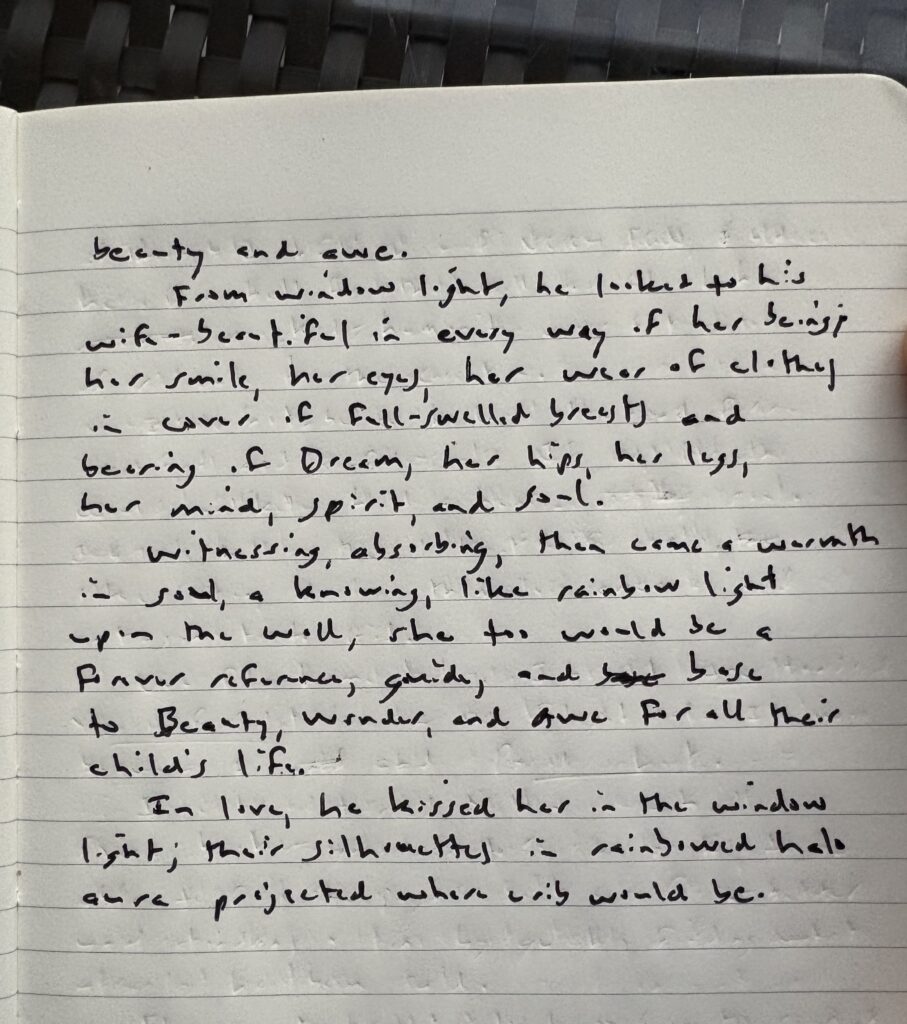 beauty and awe.
From window light, he looked to his
wife - beautiful in every way of her being;
her smile, her eyes, her wear of clothes
in cover of full-swelled breasts and
bearing of Dream, her hips, her legs,
her mind, spirit, and soul.
Witnessing, absorbing, then came a warmth
in soul, a knowing, like rainbow light
upon the wall, she too would be a
forever reference, guide, and base
to Beauty, Wonder, and Awe for all their
child's life.
In love, he kissed her in the window
light; their silhouettes in rainbowed halo
aura projected where crib would be.